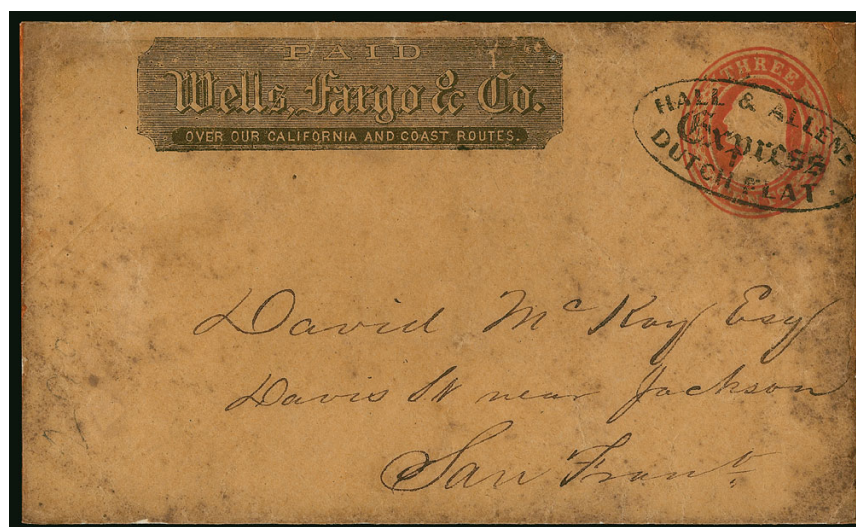 PAID
Wells, Fargo & Co.
OVER OUR CALIFORNIA AND COAST ROUTES.
THREE
HALL & ALLENS
Express
DUTCH FLAT
David McKay Esq
Davis St near Jackson
San Franco